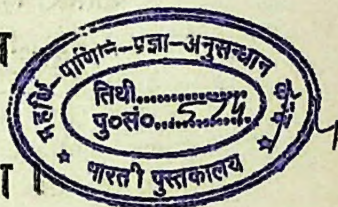 महर्षि-पाणिनि-प्रज्ञा-अनुसन्धान
तिथी..............
पु०सं०....574
★ भारती पुस्तकालय ★